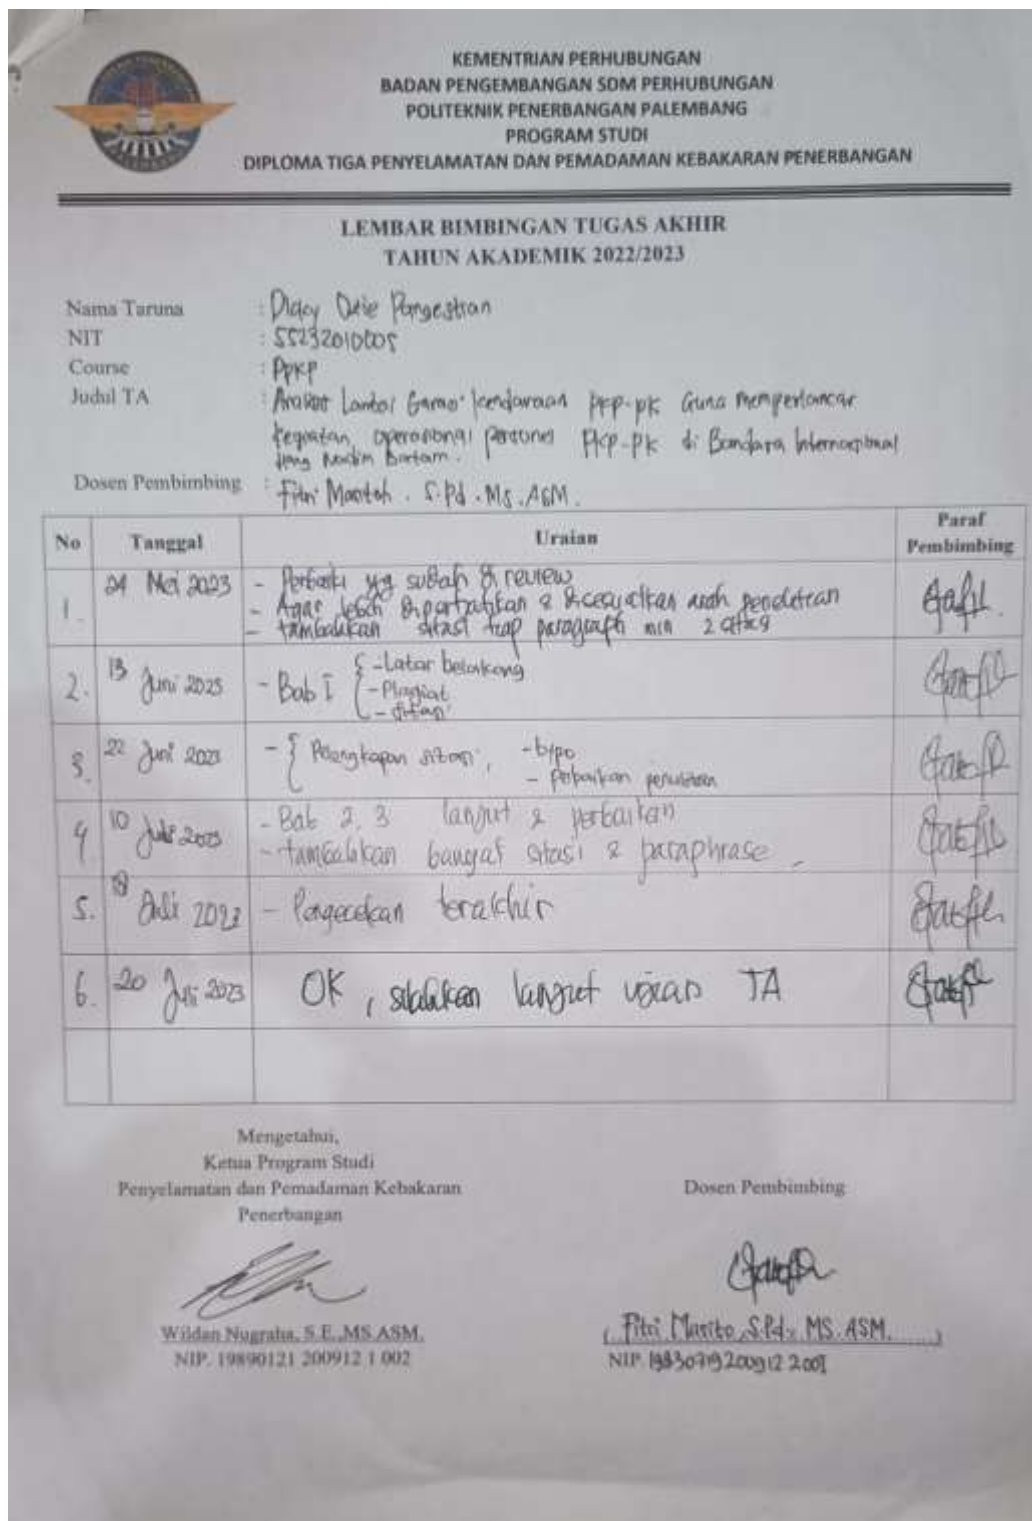 KEMENTRIAN PERHUBUNGAN
BADAN PENGEMBANGAN SDM PERHUBUNGAN
POLITEKNIK PENERBANGAN PALEMBANG
PROGRAM STUDI
DIPLOMA TIGA PENYELAMATAN DAN PEMADAMAN KEBAKARAN PENERBANGAN
LEMBAR BIMBINGAN TUGAS AKHIR
TAHUN AKADEMIK 2022/2023
Nama Taruna :
NIT : 55232010005
Course : PPKP
Judul TA : Lantai kendaraan PKP-PK Guna memperlancar
kegiatan operasional personel PKP-PK di Bandara Internasional
Nadim
Dosen Pembimbing : Fitri S.Pd. Ms. ASM.
No Tanggal Uraian Paraf Pembimbing
1. 24 Mei 2023 - Perbaiki yg sudah di review
- Agar lebih diperhatikan & arah penelitian
- tambahkan sitasi tiap paragraph min 2
2. 13 Juni 2023 - Bab I - Latar belakang
- Plagiat
- sitasi
3. 22 Juni 2023 - sitasi, - typo
- Perbaikan penulisan
4 10 Juli 2023 - Bab 2, 3 lanjut & perbaikan
- tambahkan sitasi & paraphrase
5. Juli 2023 - Pengecekan terakhir
6. 20 Juli 2023 OK, silahkan lanjut ujian TA
Mengetahui,
Ketua Program Studi
Penyelamatan dan Pemadaman Kebakaran
Penerbangan
Dosen Pembimbing
Wildan Nugraha, S.E.,MS.ASM.
NIP. 19890121 200912 1 002
( Fitri Masito, S.Pd., MS.ASM. )
NIP. 19830719 200912 2001